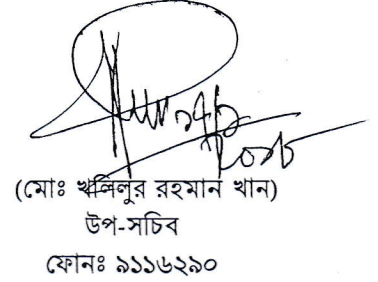 (মোঃ খলিলুর রহমান খান)
উপ-সচিব
ফোনঃ ৯১১৬২৯০